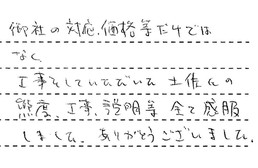 御社の対応、価格等だけでは
なく
工事をしていただいた土佐さんの
態度、工事、説明等全て感服
しました。ありがとうございました。